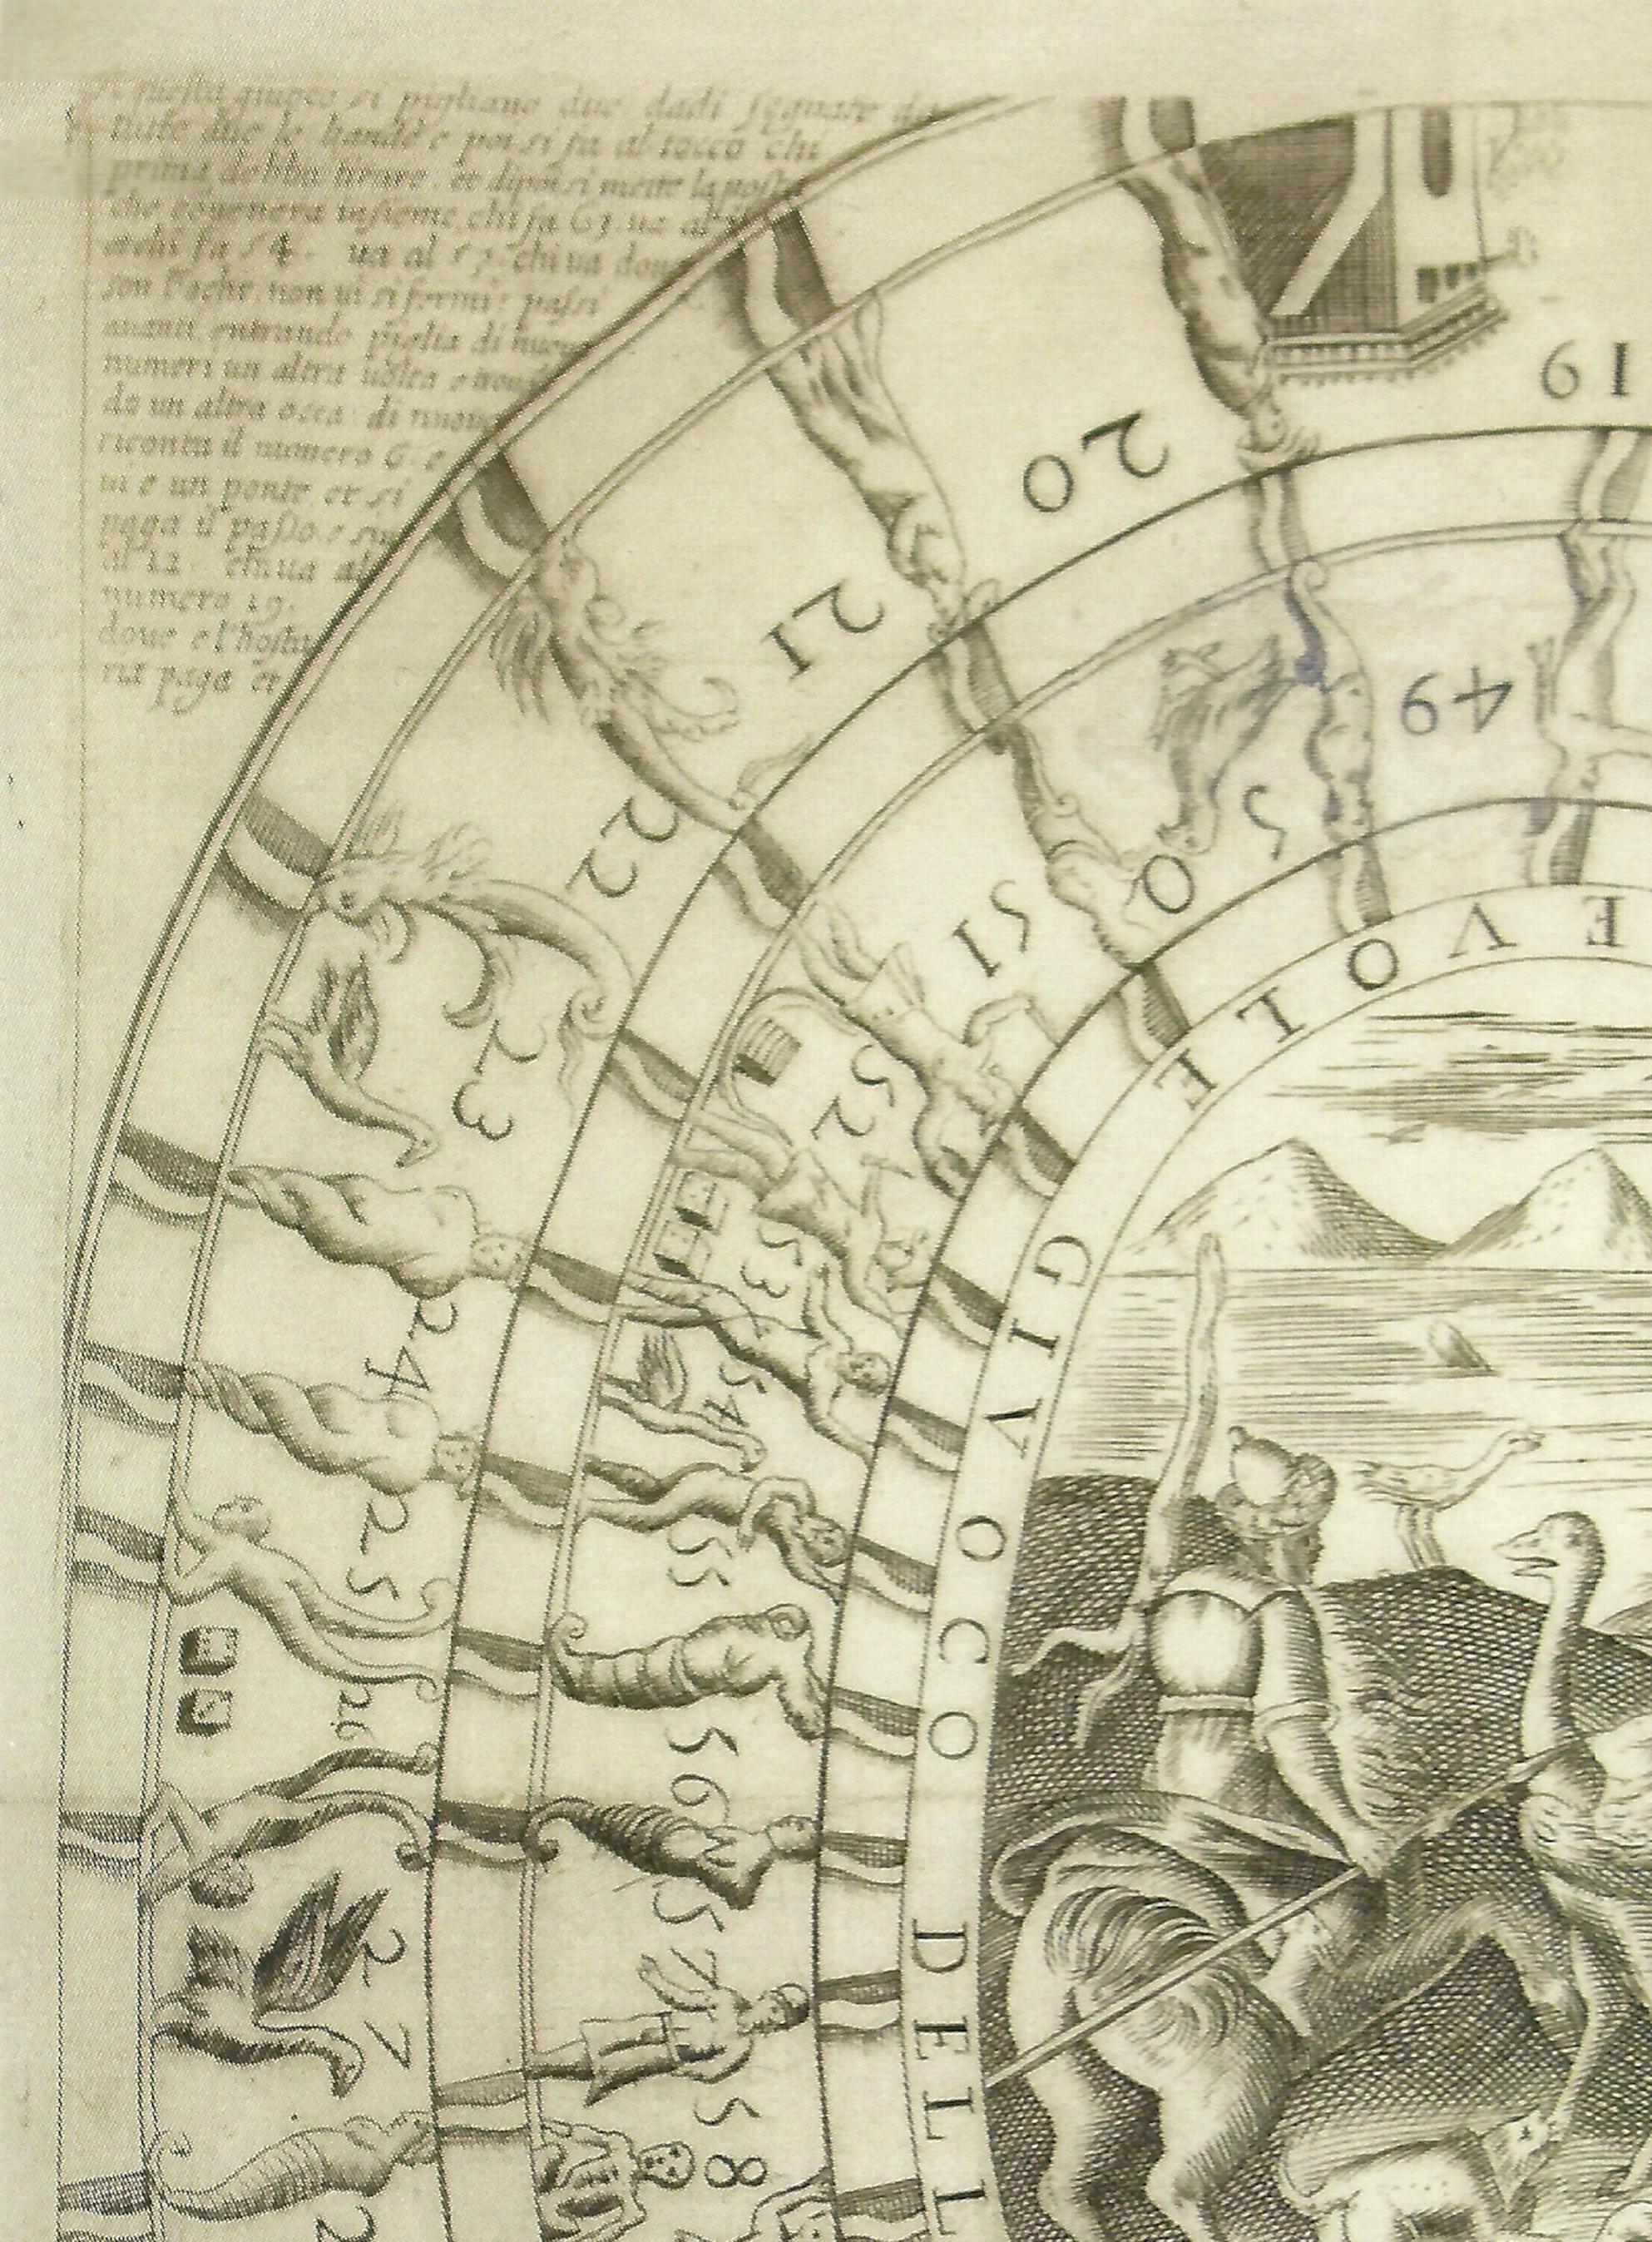 questo giuoco si pigliano due dadi segnate da
tutte due le bande e poi si fa al tocco chi
prima debba tirare. et dipoi si mette la posta
che conuenera insieme, chi fa 63 ua al
et chi fa 54. ua al 57. chi ua doue
son l'ache, non ui si fermi: passi
auanti, entrando piglia di nuouo
numeri un altra uolta e
da un altra occa: di nuouo
riconta il numero 6. e
ui e un ponte, et si
paga il passo. e
di 12. chi ua al
numero 19.
doue e l'hosta
ria paga et
19
20
21
22
23
24
25
26
27
2
49
50
51
52
53
54
55
56
57
58
EVOLE
GIVOCO
DELL